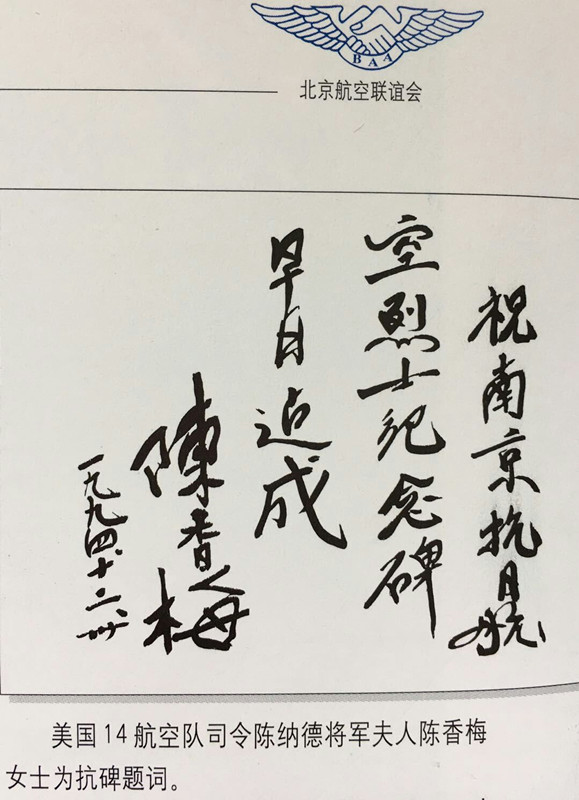 BAA
北京航空联谊会
祝南京抗日航
空烈士纪念碑
早日迠成
陳香梅
一九九四、十二、卅
美国14航空队司令陈纳德将军夫人陈香梅
女士为抗碑题词。